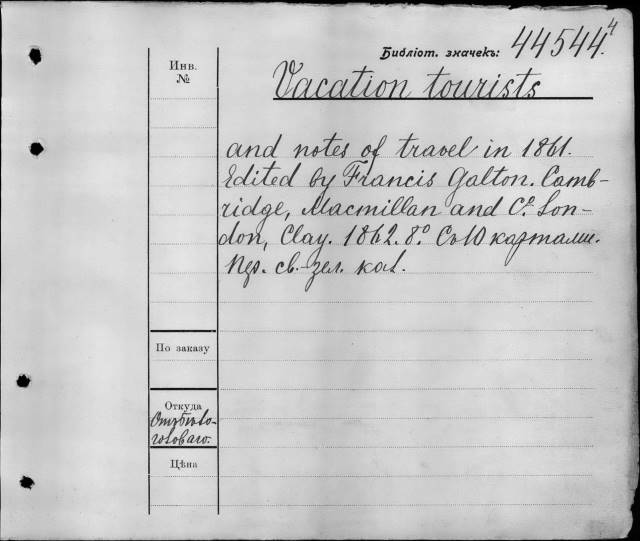 Библіот. значекъ: 44544 4
Инв.
№
Vacation tourists
and notes of travel in 1861.
Edited by Francis Galton. Camb-
ridge, Macmillan and Cº. Lon-
don, Clay. 1862. 8.º Съ 10 картами.
Пер. св.-зел. кол.
По заказу
Откуда
Цѣна